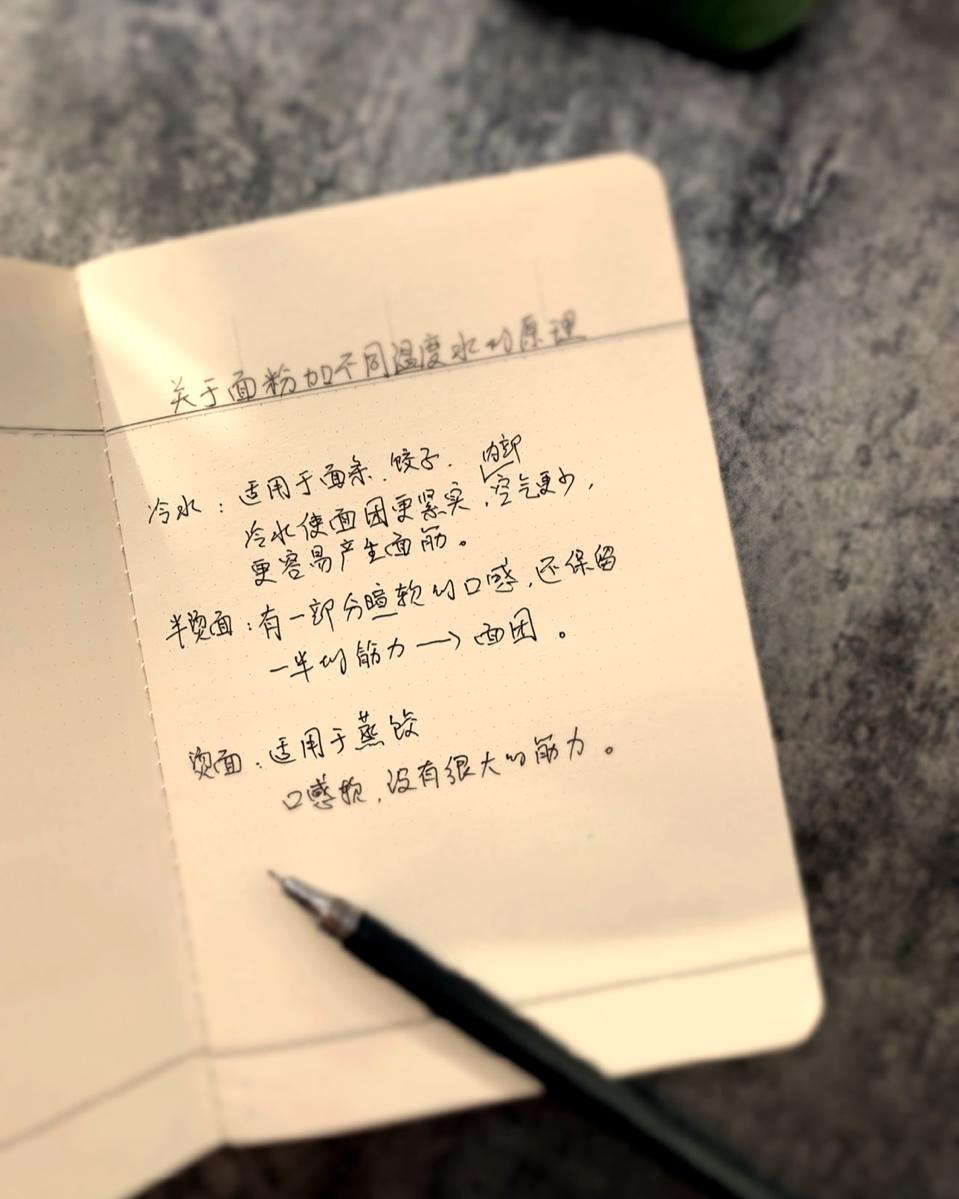 关于面粉加不同温度水的原理
冷水：适用于面条、饺子.
冷水使面团更紧实，内部空气更少，
更容易产生面筋。
半烫面：有一部分暄软的口感，还保留
一半的筋力——>面团。
烫面：适用于蒸饺
口感软，没有很大的筋力。